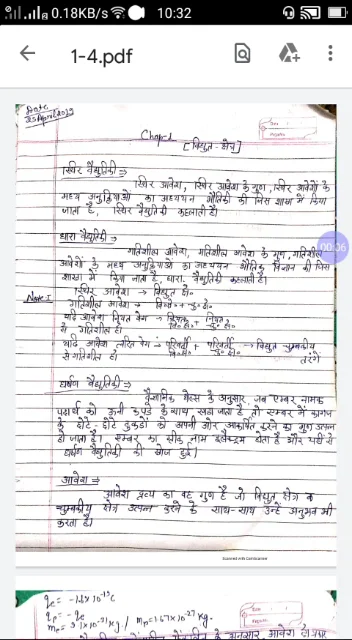 0.18KB/s 10:32
1-4.pdf
Date
25 April 2019
Chap-1
[विद्युत-क्षेत्र]
स्थिर वैद्युतिकी ⇒
स्थिर आवेश, स्थिर आवेश के गुण, स्थिर आवेशों के
मध्य अनुक्रियाओं का अध्ययन भौतिकी की जिस शाखा में किया
जाता है, स्थिर वैद्युतिकी कहलाती है।
00:06
धारा वैद्युतिकी ⇒
गतिशील आवेश, गतिशील आवेश के गुण, गतिशील
आवेशों के मध्य अनुक्रियाओं का अध्ययन भौतिक विज्ञान की जिस
शाखा में किया जाता है, धारा वैद्युतिकी कहलाती है।
Note I
स्थिर आवेश → विद्युत क्षे०
गतिशील आवेश → वि०क्षे० + चु०क्षे०
यदि आवेश नियत वेग → + नियत
से गतिशील हो वि०क्षे० चु०क्षे०
यदि आवेश त्वरित वेग → परिवर्ती + परिवर्ती → विद्युत चुम्बकीय
से गतिशील हो वि०क्षे० चु०क्षे० तरंगें
घर्षण वैद्युतिकी ⇒
वैज्ञानिक थेल्स के अनुसार, जब एम्बर नामक
पदार्थ को ऊनी कपड़े के साथ रगड़ा जाता है तो एम्बर में कागज
के छोटे-छोटे टुकड़ों को अपनी ओर आकर्षित करने का गुण उत्पन्न
हो जाता है। एम्बर का ग्रीक नाम इलेक्ट्रम होता है और यहीं से
घर्षण वैद्युतिकी की खोज हुई।
आवेश ⇒
आवेश द्रव्य का वह गुण है जो विद्युत क्षेत्र व
चुम्बकीय क्षेत्र उत्पन्न करने के साथ-साथ उन्हें अनुभव भी
करता है।
Scanned with CamScanner
qe = -1.6×10⁻¹⁹C
qp = -qe
me = 9.1×10⁻³¹kg / mp = 1.67×10⁻²⁷kg.